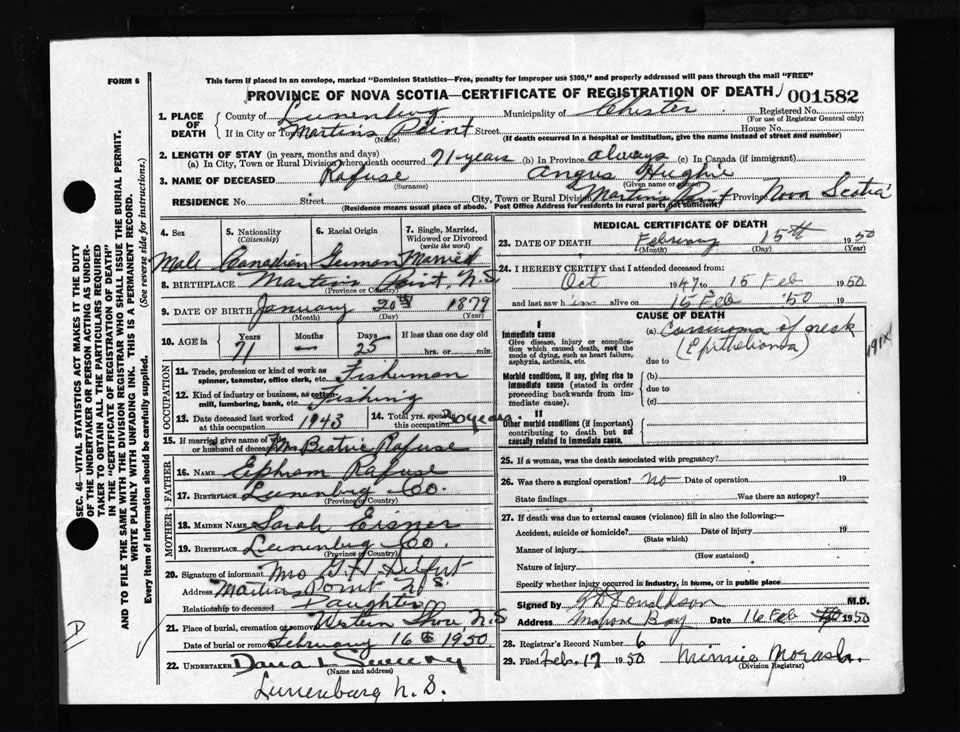 FORM 6
This form if placed in an envelope, marked "Dominion Statistics—Free, penalty for improper use $300," and properly addressed will pass through the mail "FREE"
PROVINCE OF NOVA SCOTIA—CERTIFICATE OF REGISTRATION OF DEATH 001582
1. PLACE OF DEATH
County of Lunenburg Municipality of Chester Registered No.
(For use of Registrar General only)
If in City or Town Martins Point Street House No.
(Name) (If death occurred in a hospital or institution, give the name instead of street and number)
2. LENGTH OF STAY (in years, months and days)
(a) In City, Town or Rural Division where death occurred 71 years (b) In Province always (c) In Canada (if immigrant)
3. NAME OF DECEASED Rafuse Angus Hughie
(Surname) (Given name or names)
RESIDENCE No. Street City, Town or Rural Division Martins Point Province Nova Scotia
(Residence means usual place of abode. Post Office Address for residents in rural parts not sufficient)
4. Sex
5. Nationality (Citizenship)
6. Racial Origin
7. Single, Married, Widowed or Divorced (write the word)
Male Canadian German Married
8. BIRTHPLACE Martins Point, N.S
(Province or Country)
9. DATE OF BIRTH January 20th 1879
(Month) (Day) (Year)
10. AGE in Years Months Days If less than one day old
71 — 25 hrs. or min.
OCCUPATION
11. Trade, profession or kind of work as spinner, teamster, office clerk, etc. Fisherman
12. Kind of industry or business, as cotton-mill, lumbering, bank, etc. Fishing
13. Date deceased last worked at this occupation 1943
14. Total yrs. spent in this occupation years.
15. If married give name of wife or husband of deceased Beatrice Rafuse
FATHER
16. NAME Ephram Rafuse
17. BIRTHPLACE Lunenburg Co.
(Province or Country)
MOTHER
18. MAIDEN NAME Sarah Eisner
19. BIRTHPLACE Lunenburg Co.
(Province or Country)
20. Signature of informant Mrs
Address Martins Point N S
Relationship to deceased Daughter
21. Place of burial, cremation or removal Western Shore N.S
Date of burial or removal February 16th 1950.
22. UNDERTAKER Dana L Sweeny
(Name and address)
Lunenburg N. S.
MEDICAL CERTIFICATE OF DEATH
23. DATE OF DEATH February 15th 1950
(Month) (Day) (Year)
24. I HEREBY CERTIFY that I attended deceased from:
Oct 1947 to 15 Feb 1950
and last saw him alive on 15 Feb '50 19
CAUSE OF DEATH
I
Immediate cause
Give disease, injury or complication which caused death, not the mode of dying, such as heart failure, asphyxia, asthenia, etc.
(a) Carsinoma of nesk
(Epithelioma)
due to
191X
Morbid conditions, if any, giving rise to immediate cause (stated in order proceeding backwards from immediate cause).
(b)
due to
(c)
II
Other morbid conditions (if important) contributing to death but not causally related to immediate cause.
25. If a woman, was the death associated with pregnancy?
26. Was there a surgical operation? no Date of operation 19
State findings Was there an autopsy?
27. If death was due to external causes (violence) fill in also the following:—
Accident, suicide or homicide? Date of injury 19
(State which)
Manner of injury
(How sustained)
Nature of injury
Specify whether injury occurred in industry, in home, or in public place
Signed by Donaldson M.D.
Address Mahone Bay Date 16 Feb 1950
28. Registrar's Record Number 6
29. Filed Feb. 17 1950 Minnie Morash.
(Division Registrar)
SEC. 46—VITAL STATISTICS ACT MAKES IT THE DUTY
OF THE UNDERTAKER OR PERSON ACTING AS UNDER-
TAKER TO OBTAIN ALL THE PARTICULARS REQUIRED
IN THE "CERTIFICATE OF REGISTRATION OF DEATH"
AND TO FILE THE SAME WITH THE DIVISION REGISTRAR WHO SHALL ISSUE THE BURIAL PERMIT.
WRITE PLAINLY WITH UNFADING INK. THIS IS A PERMANENT RECORD.
Every item of Information should be carefully supplied. (See reverse side for instructions.)